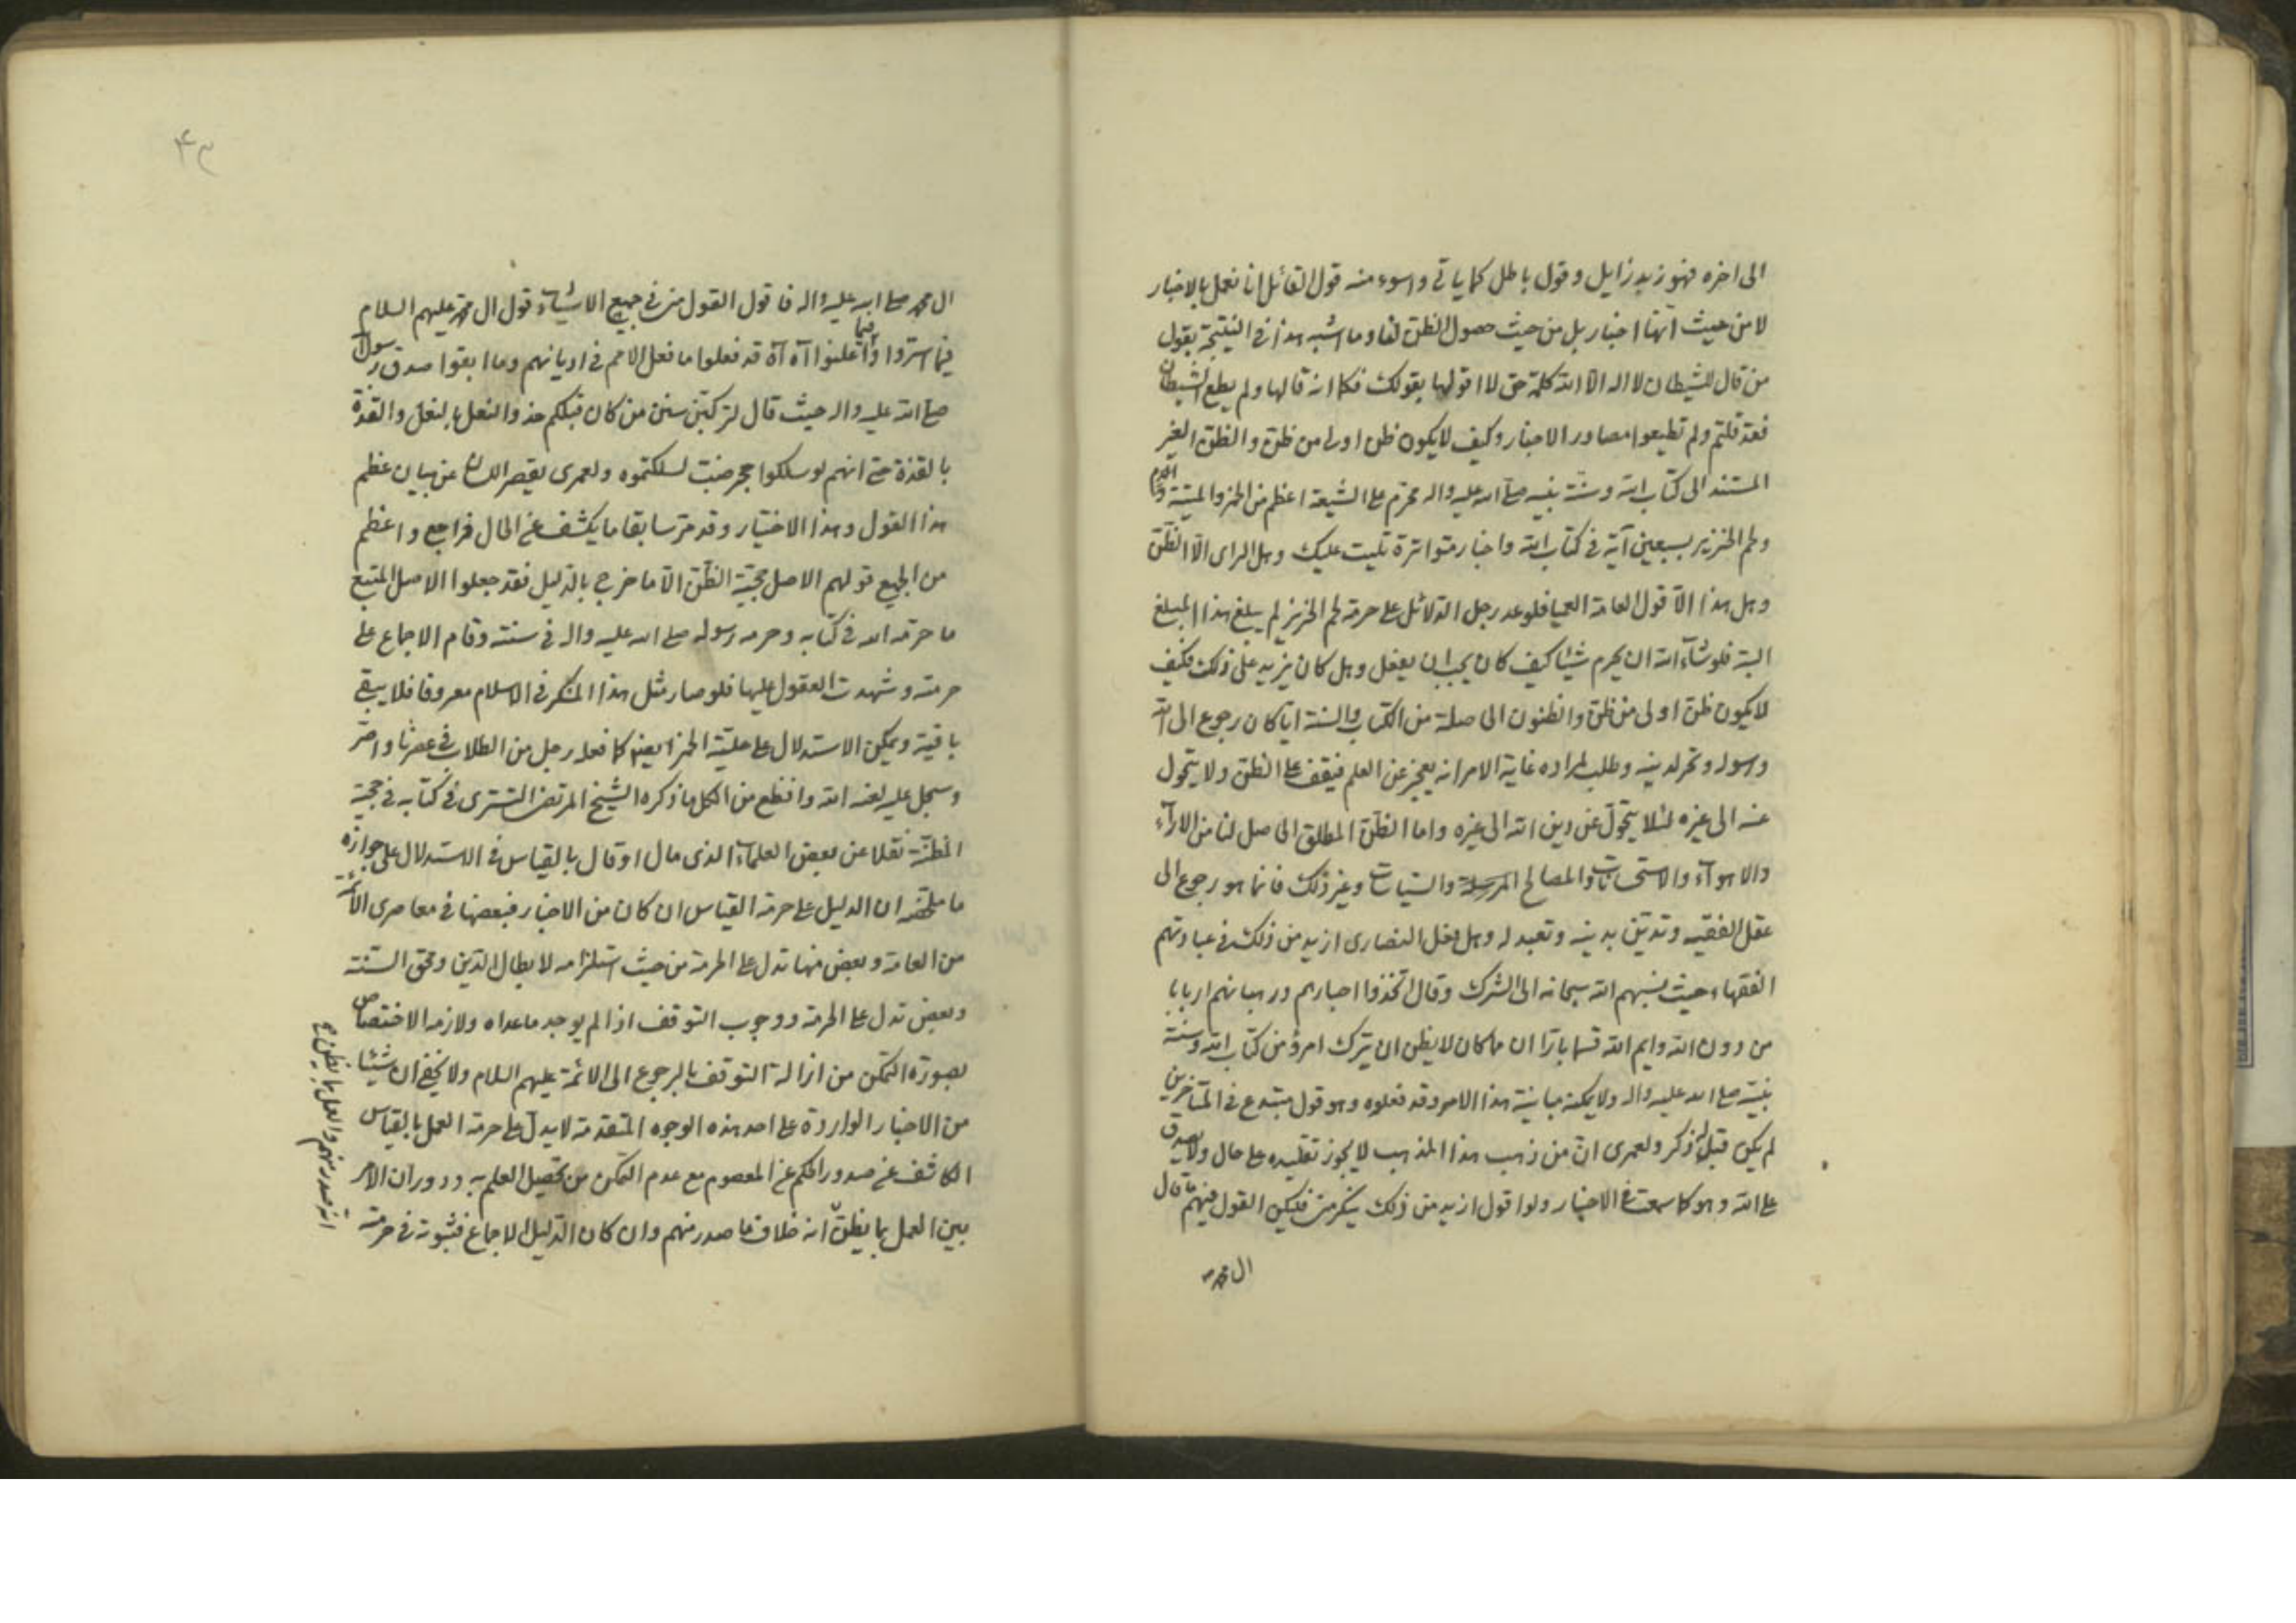 الى اخره فهو زبد زايل وقول باطل كما ياتى واسوء منه قول القائل انا نعمل بالاخبار
لا من حيث انها اخبار بل من حيث حصول الظن لنا وما اشبه هذا فى النتيجة بقول
من قال للشيطان لا اله الا الله كلمة حق لا اقولها بقولك فكما انه قالها ولم يطع الشيطان
فقد قلتم ولم تطيعوا مصادر الاخبار وكيف لا يكون ظن اولى من ظن والظن الغير
المستند الى كتاب الله وسنة نبيه صلى الله عليه واله محرم على الشيعة اعظم من الخمر والميتة والدم
ولحم الخنزير بسبعين آية فى كتاب الله واخبار متواترة تليت عليك وهل الراى الا الظن
وهل هذا الا قول العامة العميا فلو عد رجل الدلائل على حرمة لحم الخنزير لم يبلغ هذا المبلغ
البتة فلو شآء الله ان يحرم شيئا كيف كان يجب ان يفعل وهل كان يزيد على ذلك فكيف
لا يكون ظن اولى من ظن والظنون الحاصلة من الكتاب والسنة اياكان رجوع الى الله
ورسوله وتحر لدينه وطلب لمراده غاية الامر انه يعجز عن العلم فيقف على الظن ولا يتحول
عنه الى غيره لئلا يتحول عن دين الله الى غيره واما الظن المطلق الحاصل لنا من الارآء
والاهوآء والاستحسانات والمصالح المرسلة والسياسات وغير ذلك فانما هو رجوع الى
عقل الفقيه وتدين بدينه وتعبد له وهل فعل النصارى ازيد من ذلك فى عبادتهم
الفقهاء حيث نسبهم الله سبحانه الى الشرك وقال اتخذوا احبارهم ورهبانهم اربابا
من دون الله وايم الله قسما بارا ان ما كان لا يظن ان يترك امرؤ من كتاب الله وسنة
نبيه صلى الله عليه واله ولا يمكنه مباينة هذا الامر وقد فعلوه وهو قول مبتدع فى المتاخرين
لم يكن قبل له ذكر ولعمرى ان من ذهب هذا المذهب لا يجوز تقليده على حال ولا يصدق
على الله وهو كما سمعت فى الاخبار ولو اقول ازيد من ذلك ينكر منى فليكن القول فيهم ما قال
ال محمد
۴۳
ال محمد صلى الله عليه واله فاقول القول منى فى جميع الاشيآء قول ال محمد عليهم السلام
فيما اسروا وفيما اعلنوا آه آه قد فعلوا ما فعل الامم فى اديانهم وما ابقوا صدق رسول الله
صلى الله عليه واله حيث قال لتركبن سنن من كان قبلكم حذو النعل بالنعل والقذة
بالقذة حتى انهم لو سلكوا جحر ضب لسلكتموه ولعمرى يقصر اللسان عن بيان عظم
هذا القول وهذا الاختيار وقد مر سابقا ما يكشف عن الحال فراجع واعظم
من الجميع قولهم الاصل حجية الظن الا ما خرج بالدليل فقد جعلوا الاصل المتبع
ما حرمه الله فى كتابه وحرمه رسوله صلى الله عليه واله فى سنته وقام الاجماع على
حرمته وشهدت العقول عليها فلو صار مثل هذا المنكر فى الاسلام معروفا فلا يبقى
باقية ويمكن الاستدلال على حلية الخمر ايضا كما فعله رجل من الطلاب فى عصرنا واصر
وسجل عليه لعنه الله وافظع من الكل ما ذكره الشيخ المرتضى التسترى فى كتابه فى حجية
المظنة نقلا عن بعض العلمآء الذى مال او قال بالقياس فى الاستدلال على جوازه
ما ملخصه ان الدليل على حرمة القياس ان كان من الاخبار فبعضها فى معاصرى الائمة
من العامة وبعض منها تدل على الحرمة من حيث استلزامه لابطال الدين ومحق السنة
وبعض تدل على الحرمة ووجوب التوقف اذا لم يوجد ما عداه ولازمه الاختصاص
بصورة التمكن من ازالة التوقف بالرجوع الى الائمة عليهم السلام ولا يخفى ان شيئا
من الاخبار الواردة على احد هذه الوجوه المتقدمة لا يدل على حرمة العمل بالقياس
الكاشف عن صدور الحكم عن المعصوم مع عدم التمكن من تحصيل العلم به ودوران الامر
بين العمل بما يظن انه خلاف ما صدر منهم وان كان الدليل الاجماع فثبوته فى حرمة
انه صدر منهم والعمل بما يظن